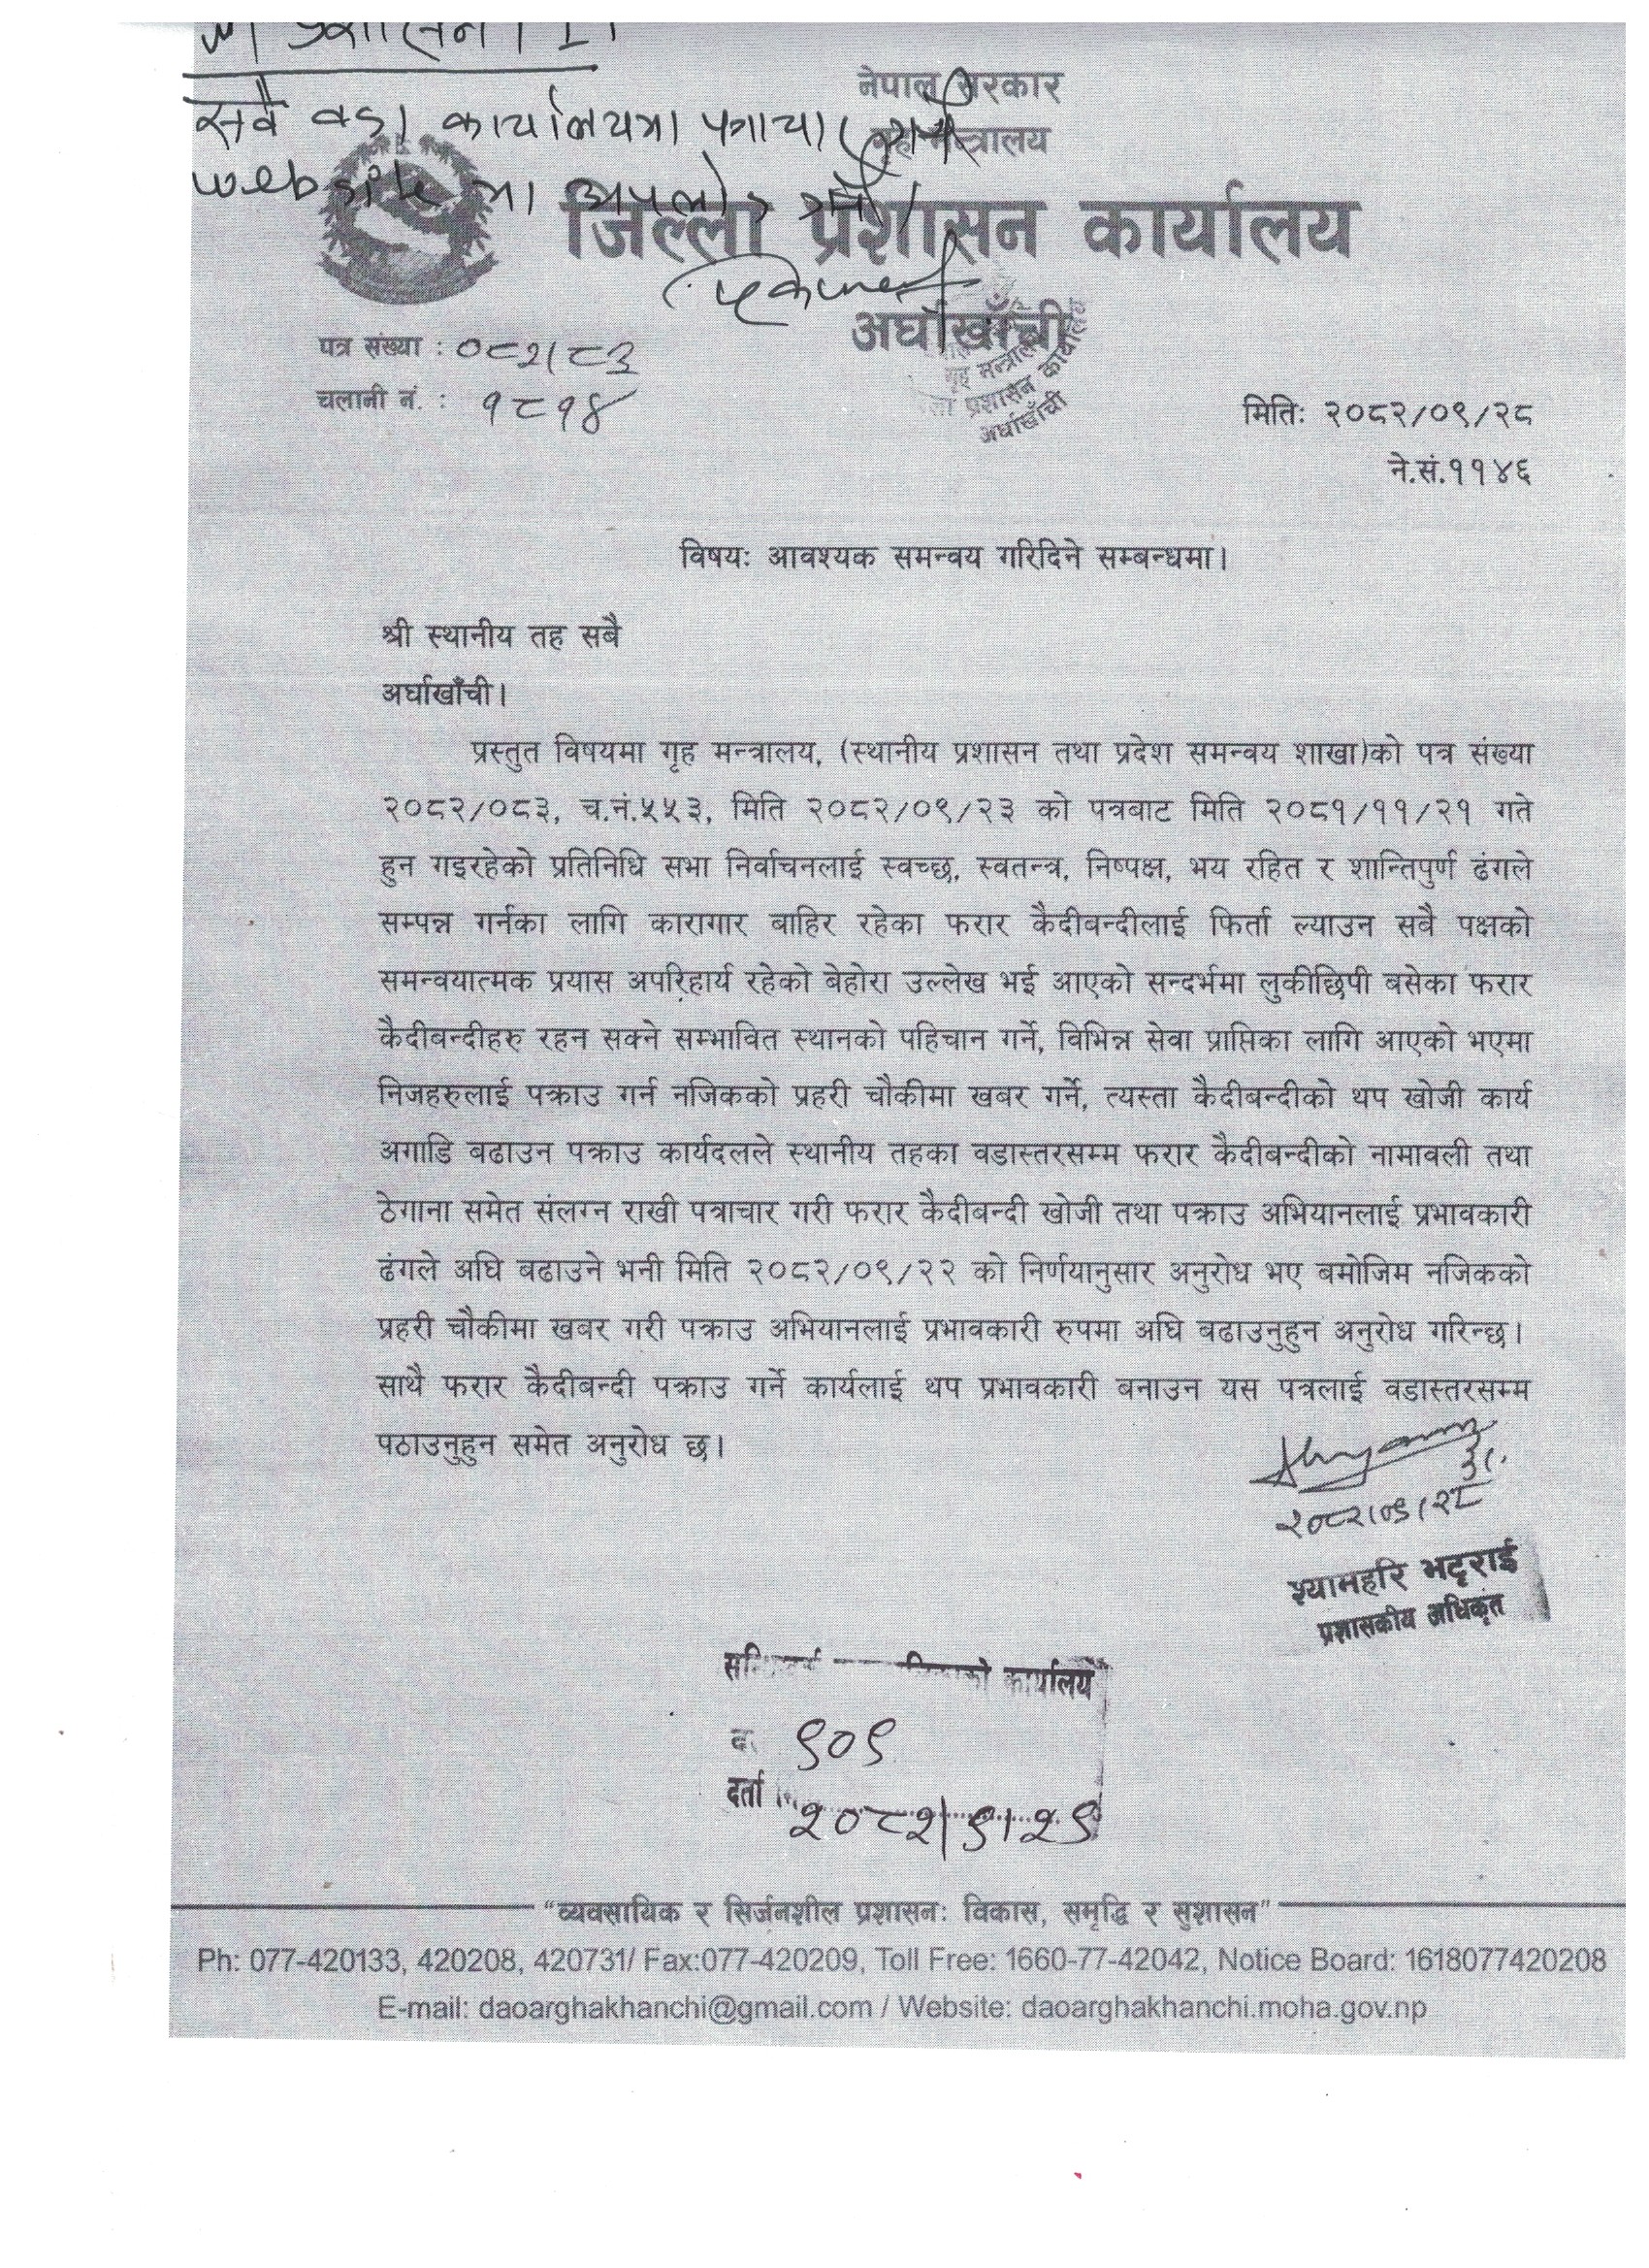 प्रशासन ।
सबै वडा कार्यालयमा पठाया
website मा अपलोड गर्ने ।
नेपाल सरकार
गृह मन्त्रालय
जिल्ला प्रशासन कार्यालय
अर्घाखाँची
गृह मन्त्रालय
प्रशासन कार्यालय
अर्घाखाँची
पत्र संख्या : ०८२/८३
चलानी नं. : १८१४
मितिः २०८२/०९/२८
ने.सं.११४६
विषयः आवश्यक समन्वय गरिदिने सम्बन्धमा।
श्री स्थानीय तह सबै
अर्घाखाँची।
प्रस्तुत विषयमा गृह मन्त्रालय, (स्थानीय प्रशासन तथा प्रदेश समन्वय शाखा)को पत्र संख्या
२०८२/०८३, च.नं.५५३, मिति २०८२/०९/२३ को पत्रबाट मिति २०८१/११/२१ गते
हुन गइरहेको प्रतिनिधि सभा निर्वाचनलाई स्वच्छ, स्वतन्त्र, निष्पक्ष, भय रहित र शान्तिपुर्ण ढंगले
सम्पन्न गर्नका लागि कारागार बाहिर रहेका फरार कैदीबन्दीलाई फिर्ता ल्याउन सबै पक्षको
समन्वयात्मक प्रयास अपरिहार्य रहेको बेहोरा उल्लेख भई आएको सन्दर्भमा लुकीछिपी बसेका फरार
कैदीबन्दीहरु रहन सक्ने सम्भावित स्थानको पहिचान गर्ने, विभिन्न सेवा प्राप्तिका लागि आएको भएमा
निजहरुलाई पक्राउ गर्न नजिकको प्रहरी चौकीमा खबर गर्ने, त्यस्ता कैदीबन्दीको थप खोजी कार्य
अगाडि बढाउन पक्राउ कार्यदलले स्थानीय तहका वडास्तरसम्म फरार कैदीबन्दीको नामावली तथा
ठेगाना समेत संलग्न राखी पत्राचार गरी फरार कैदीबन्दी खोजी तथा पक्राउ अभियानलाई प्रभावकारी
ढंगले अघि बढाउने भनी मिति २०८२/०९/२२ को निर्णयानुसार अनुरोध भए बमोजिम नजिकको
प्रहरी चौकीमा खबर गरी पक्राउ अभियानलाई प्रभावकारी रुपमा अघि बढाउनुहुन अनुरोध गरिन्छ।
साथै फरार कैदीबन्दी पक्राउ गर्ने कार्यलाई थप प्रभावकारी बनाउन यस पत्रलाई वडास्तरसम्म
पठाउनुहुन समेत अनुरोध छ।
२०८२/०९/२८
श्यामहरि भट्टराई
प्रशासकीय अधिकृत
कार्यालय
९०९
दर्ता
२०८२/९/२९
“व्यवसायिक र सिर्जनशील प्रशासनः विकास, समृद्धि र सुशासन”
Ph: 077-420133, 420208, 420731/ Fax:077-420209, Toll Free: 1660-77-42042, Notice Board: 1618077420208
E-mail: daoarghakhanchi@gmail.com / Website: daoarghakhanchi.moha.gov.np